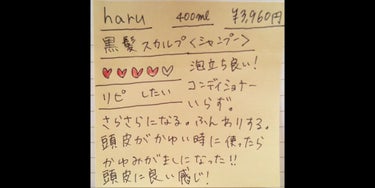 haru 400ml ¥3,960円
黒髪スカルプ〈シャンプー〉
♥♥♥♥♡ 泡立ち良い!
リピしたい コンディショナー
いらず。
さらさらになる。ふんわりする。
頭皮がかゆい時に使ったら
かゆみがましになった!!
頭皮に良い感じ!